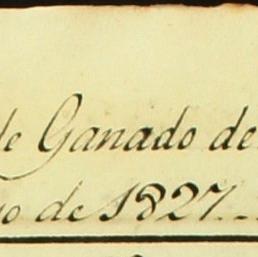 de Ganado de
o de 1827..